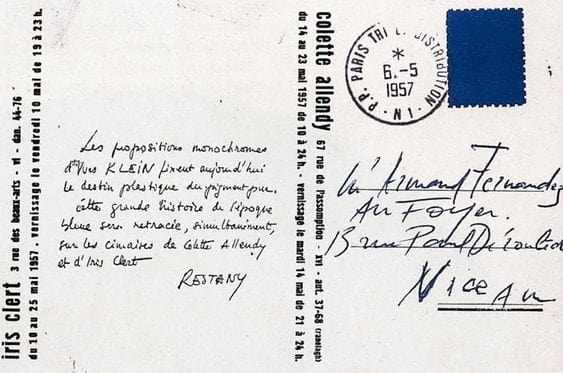 iris clert 3 rue des beaux-arts - vi - dan. 44-76
du 10 au 25 mai 1957. vernissage le vendredi 10 mai de 19 à 23 h.
Les propositions monochromes
d'Yves KLEIN fixent aujourd'hui
le destin plastique du pigment pur.
Cette grande histoire de l'époque
bleue sera retracée, simultanément,
sur les cimaises de Colette Allendy
et d'Iris Clert
RESTANY
colette allendy 67 rue de l'assomption - xvi - aut. 37-68 (ranelagh)
du 14 au 23 mai 1957 de 10 à 24 h. - vernissage le mardi 14 mai de 21 à 24 h.
P.P. PARIS TRI DISTRIBUTION - I N
*
6.-5
1957
Mr Armand Fernandez
Au Foyer.
13 rue Paul Déroulède
Nice AM